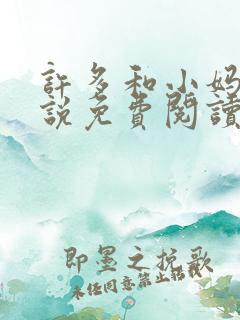 許多和小妈
說免費閱讀
即墨之挽歌
未经同意禁止转载